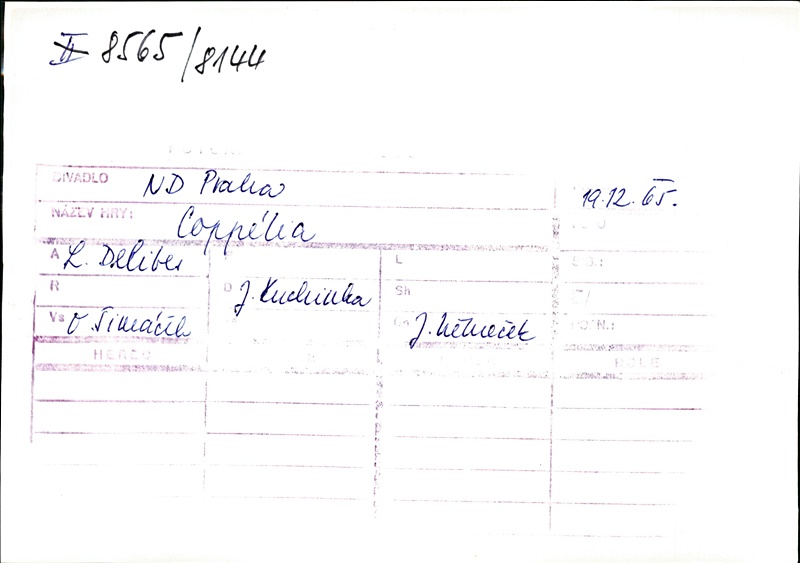 II 8565/8144
DIVADLO ND Praha 19.12.65.
NÁZEV HRY: Coppélia
A L. Delibes L
R D J. Kuchinka Sh
Vs O. Šimáček Ch J. Němeček POZN.:
HEREC ROLE